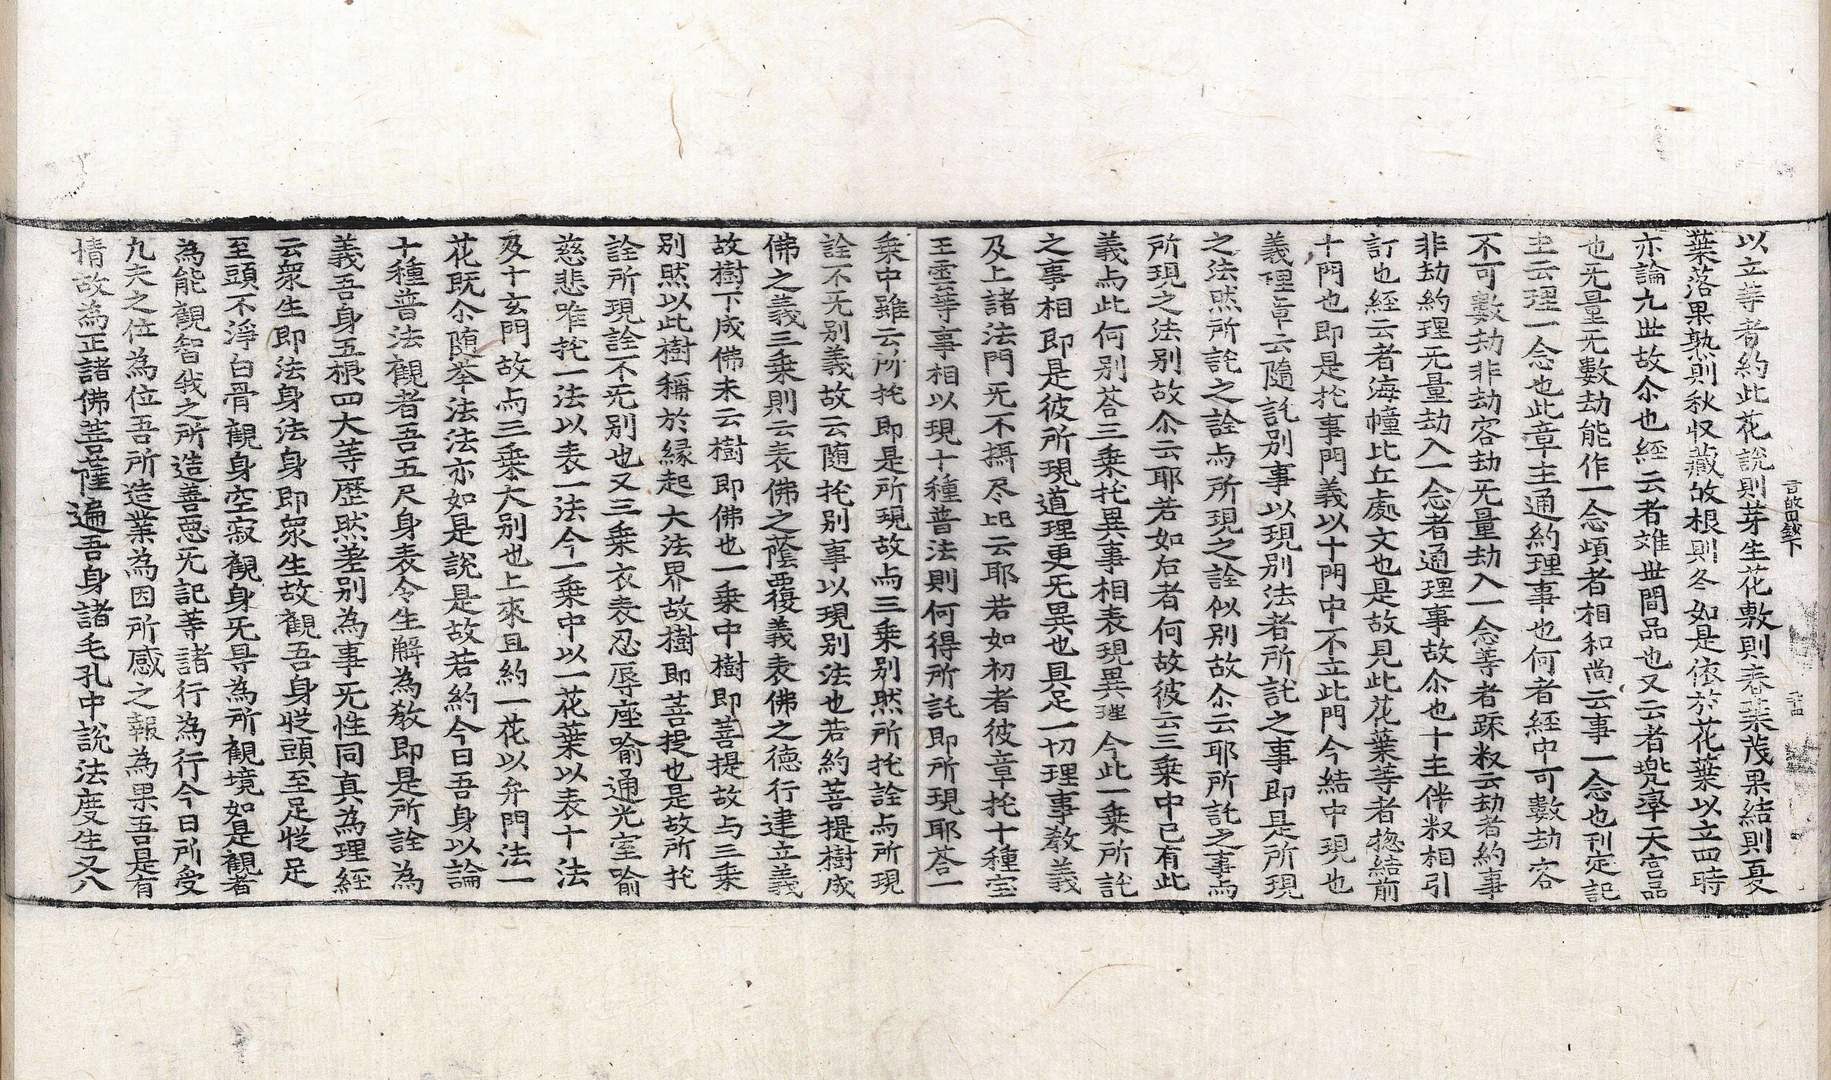 以立等者約此花說則芽生花敷則春葉茂果結則夏
葉落果熟則秋收藏故根則冬如是依於花葉以立四時
亦論九世故尒也經云者难世間品也又云者兠率天宮品
也无量无數劫能作一念頃者相和尚云事一念也刊定記
主云理一念也此章主通約理事也何者經中可數劫容
不可數劫非劫容劫无量劫入一念等者疎釈云劫者約事
非劫約理无量劫入一念者通理事故尒也十主伴釈相引
訂也經云者海幢比丘處文也是故見此花葉等者揔結前
十門也即是托事門義以十門中不立此門今結中現也
義理章云隨託別事以現別法者所託之事即是所現
之法然所託之詮与所現之詮似別故尒云耶所託之事与
所現之法別故尒云耶若如后者何故彼云三乗中已有此
義与此何別荅三乗托異事相表現異理今此一乗所託
之事相即是彼所現道理更无異也具足一切理事教義
及上諸法門无不攝尽 云耶若如初者彼章托十種宝
王雲等事相以現十種普法則何得所託即所現耶荅一
乗中雖云所托即是所現故与三乗別然所托詮与所現
詮不无別義故云随托別事以現別法也若約菩提樹成
佛之義三乗則云表佛之蔭覆義表佛之德行建立義
故樹下成佛未云樹即佛也一乗中樹即菩提故与三乗
別然以此樹稱於緣起大法界故樹即菩提也是故所托
詮所現詮不无別也又三乗衣表忍辱座喻通光室喻
慈悲唯托一法以表一法今一乗中以一花葉以表十法
及十玄門故与三乗大別也上來且約一花以弁門法一
花既尒随荅法法亦如是說是故若約今日吾身以論
十種普法觀者吾五尺身表令生解為教即是所詮為
義吾身五根四大等歷然差別為事无性同真為理經
云衆生即法身法身即衆生故觀吾身從頭至足從足
至頭不淨白骨觀身空寂觀身无㝵為所觀境如是觀者
為能觀智我之所造善惡无記等諸行為行今日所受
九夫之位為位吾所造業為因所感之報為果吾是有
情故為正諸佛菩薩遍吾身諸毛孔中說法度生又八